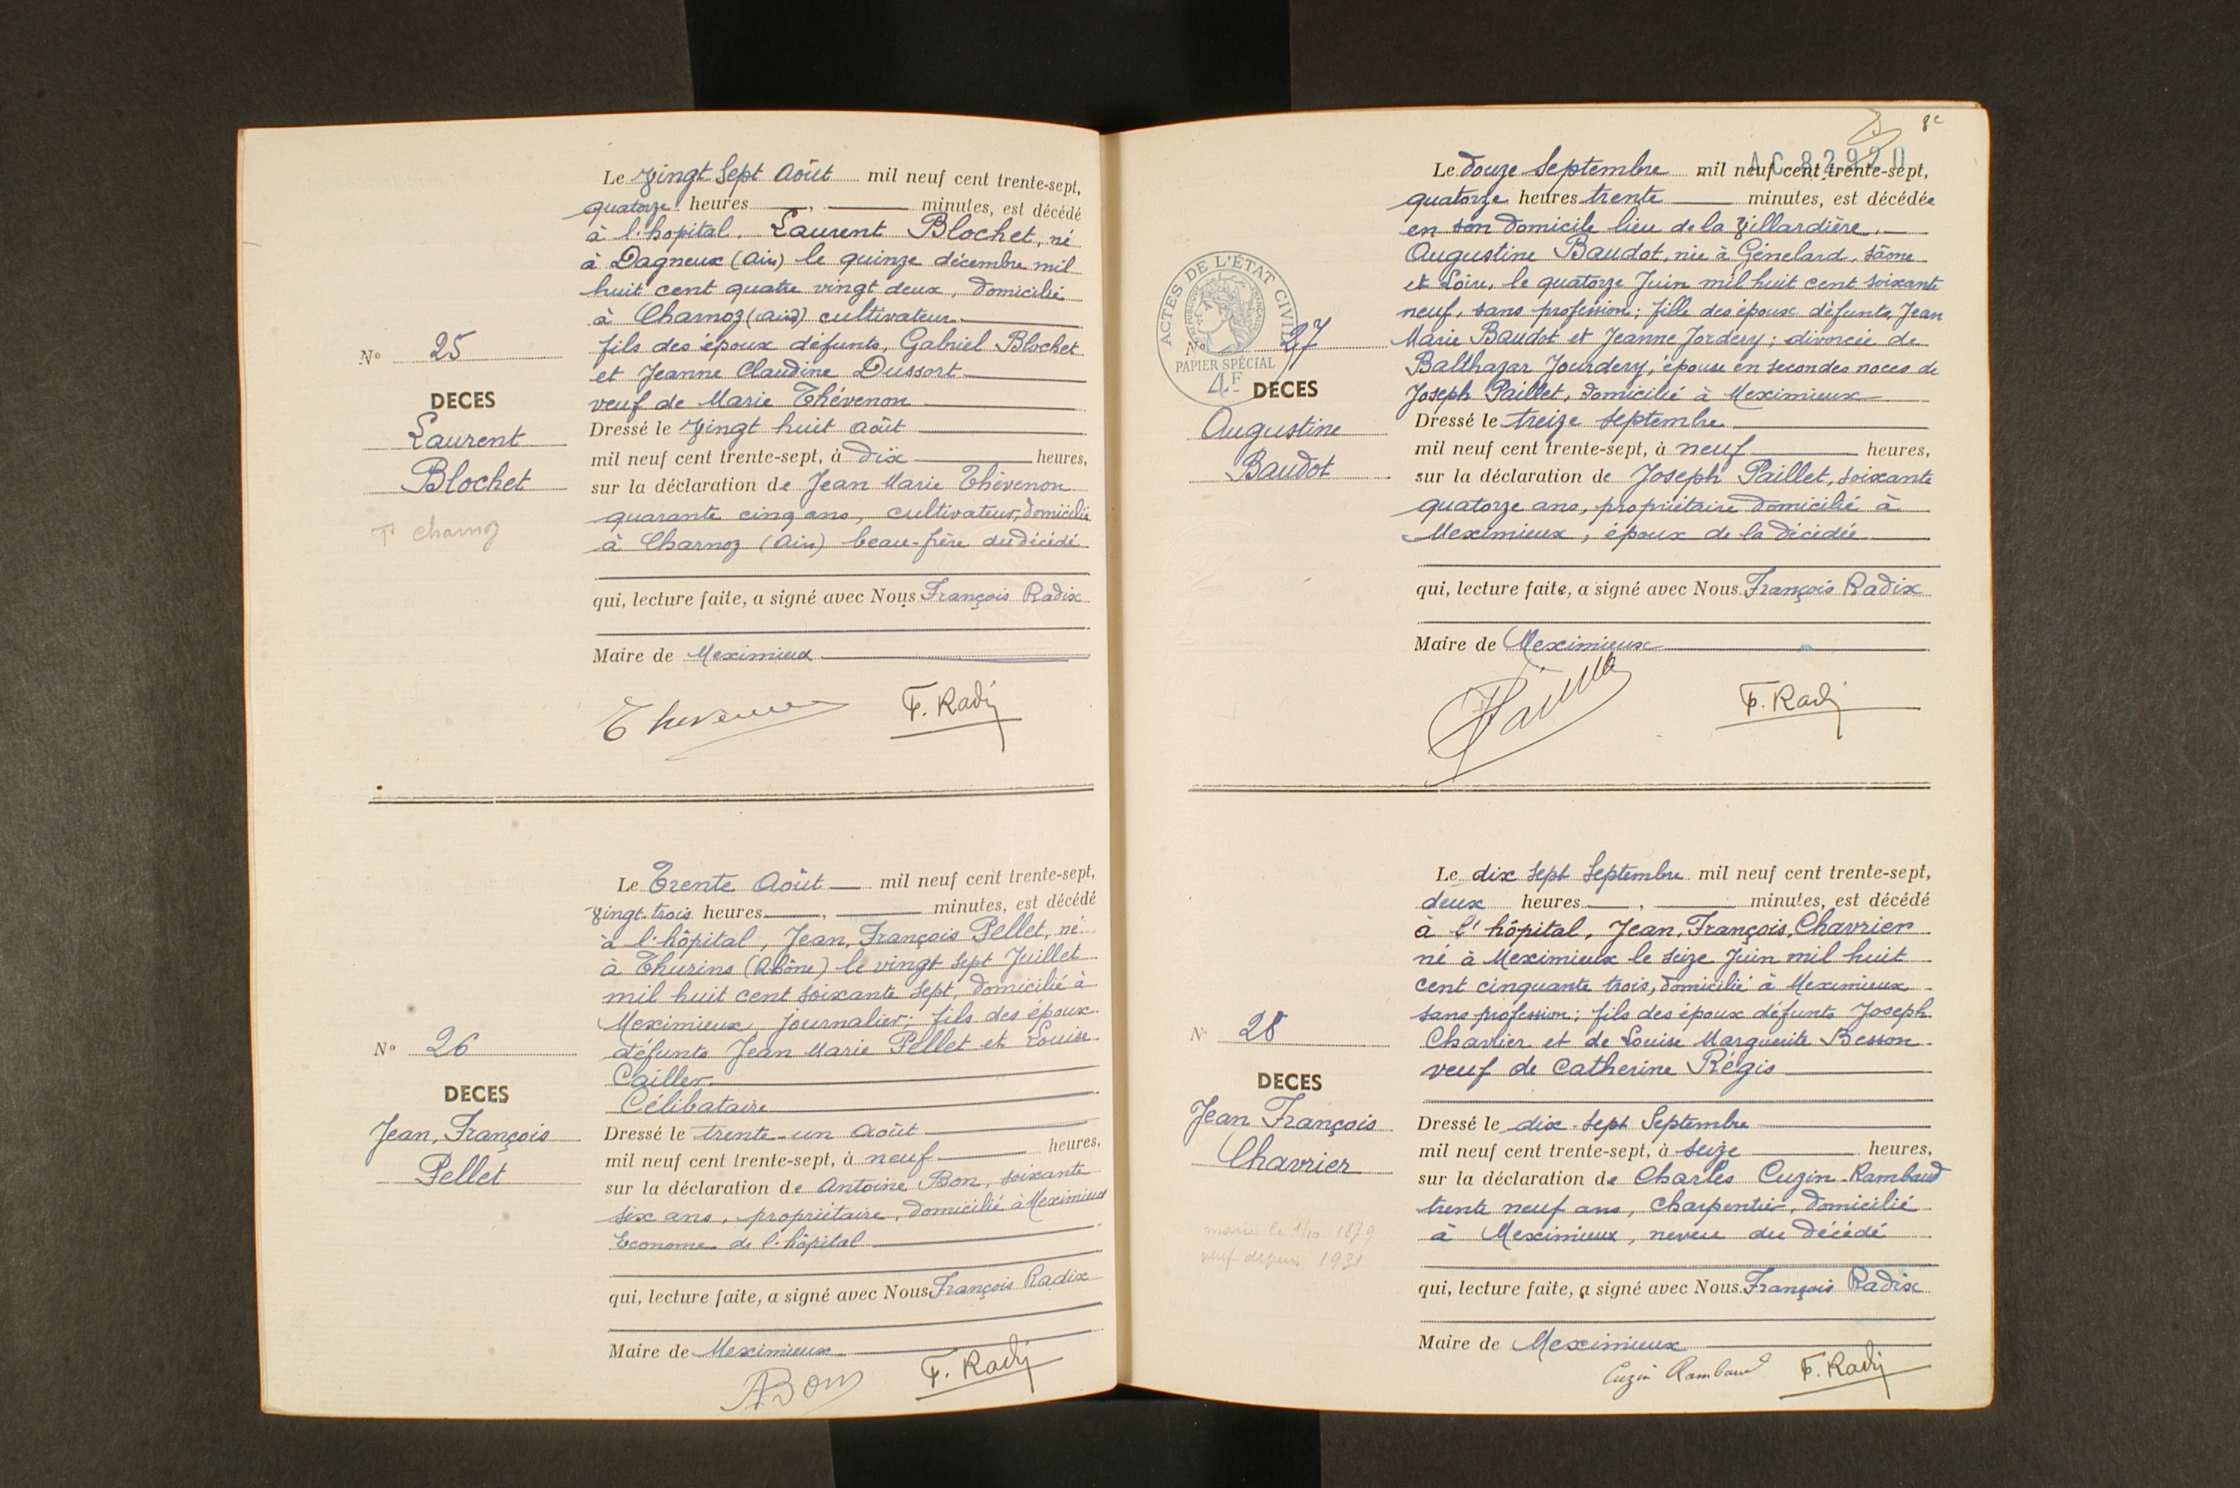 Le Vingt Sept Août mil neuf cent trente-sept,
quatorze heures , minutes, est décédé
à l'hopital. Laurent Blochet, né
à Dagneux (Ain) le quinze décembre mil
huit cent quatre vingt deux, domicilié
à Charnoz (Ain) cultivateur
fils des époux défunts, Gabriel Blochet
et Jeanne Claudine Dussort
veuf de Marie Thévenon
Dressé le Vingt huit août
mil neuf cent trente-sept, à dix heures,
sur la déclaration de Jean Marie Thévenon
quarante cinq ans, cultivateur, domicilié
à Charnoz (Ain) beau-frère du décédé
qui, lecture faite, a signé avec Nous François Radix
Maire de Meximieux
Thevenon F. Radix
No 25
DECES
Laurent
Blochet
Charnoz
Le Trente Août mil neuf cent trente-sept,
vingt-trois heures , minutes, est décédé
à l'hôpital, Jean, François Pellet, né
à Thurins (Rhône) le vingt sept Juillet
mil huit cent soixante sept, domicilié à
Meximieux, journalier; fils des époux
défunts Jean Marie Pellet et Louise
Cailler
Célibataire
Dressé le trente-un août
mil neuf cent trente-sept, à neuf heures,
sur la déclaration de Antoine Bon, soixante
six ans, propriétaire, domicilié à Meximieux
Econome de l'hôpital
qui, lecture faite, a signé avec Nous François Radix
Maire de Meximieux
ABon F. Radix
No 26
DECES
Jean, François
Pellet
8e
AC 82920
Le douze Septembre mil neuf cent trente-sept,
quatorze heures trente minutes, est décédée
en son domicile lieu de la Villardière,
Augustine Baudot, née à Génelard, Sâone
et Loire, le quatorze Juin mil huit cent soixante
neuf, sans profession; fille des époux défunts, Jean
Marie Baudot et Jeanne Jordery; divorcée de
Balthazar Jourdery, épouse en secondes noces de
Joseph Paillet, domicilié à Meximieux
Dressé le treize septembre
mil neuf cent trente-sept, à neuf heures,
sur la déclaration de Joseph Paillet, soixante
quatorze ans, propriétaire domicilié à
Meximieux, époux de la décédée
qui, lecture faite, a signé avec Nous François Radix
Maire de Meximieux
Paillet F. Radix
ACTES DE L'ÉTAT CIVIL
No 27
PAPIER SPÉCIAL
4F
DECES
Augustine
Baudot
Le dix sept Septembre mil neuf cent trente-sept,
deux heures , minutes, est décédé
à l'hôpital, Jean, François, Chavrier
né à Meximieux le seize Juin mil huit
cent cinquante trois, domicilié à Meximieux
sans profession; fils des époux défunts Joseph
Chavrier et de Louise Marguerite Besson
veuf de Catherine Régis
Dressé le dix-sept Septembre
mil neuf cent trente-sept, à seize heures,
sur la déclaration de Charles Cuzin-Rambaud
trente neuf ans, Charpentier, domicilié
à Meximieux, neveu du décédé
qui, lecture faite, a signé avec Nous François Radix
Maire de Meximieux
Cuzin Rambaud F. Radix
No 28
DECES
Jean François
Chavrier
marié le 1/10 1879
veuf depuis 1931